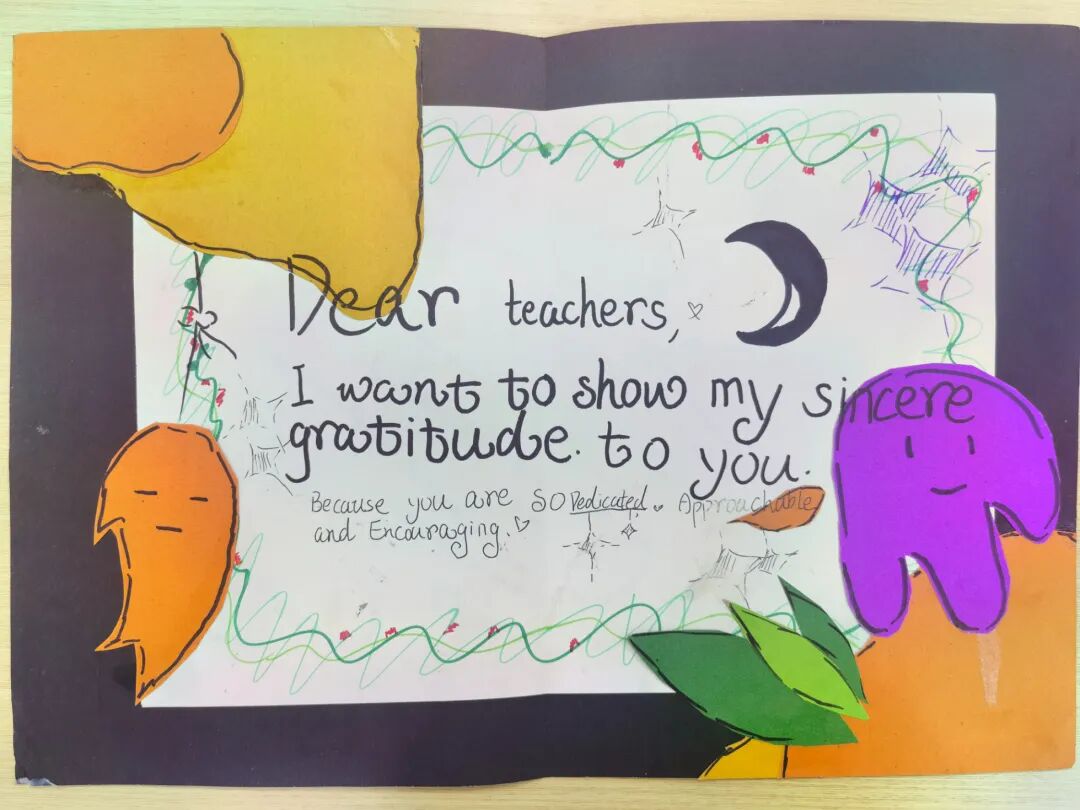 Dear teachers,
I want to show my sincere
gratitude. to you.
Because you are so Dedicated. Approachable
and Encouraging.